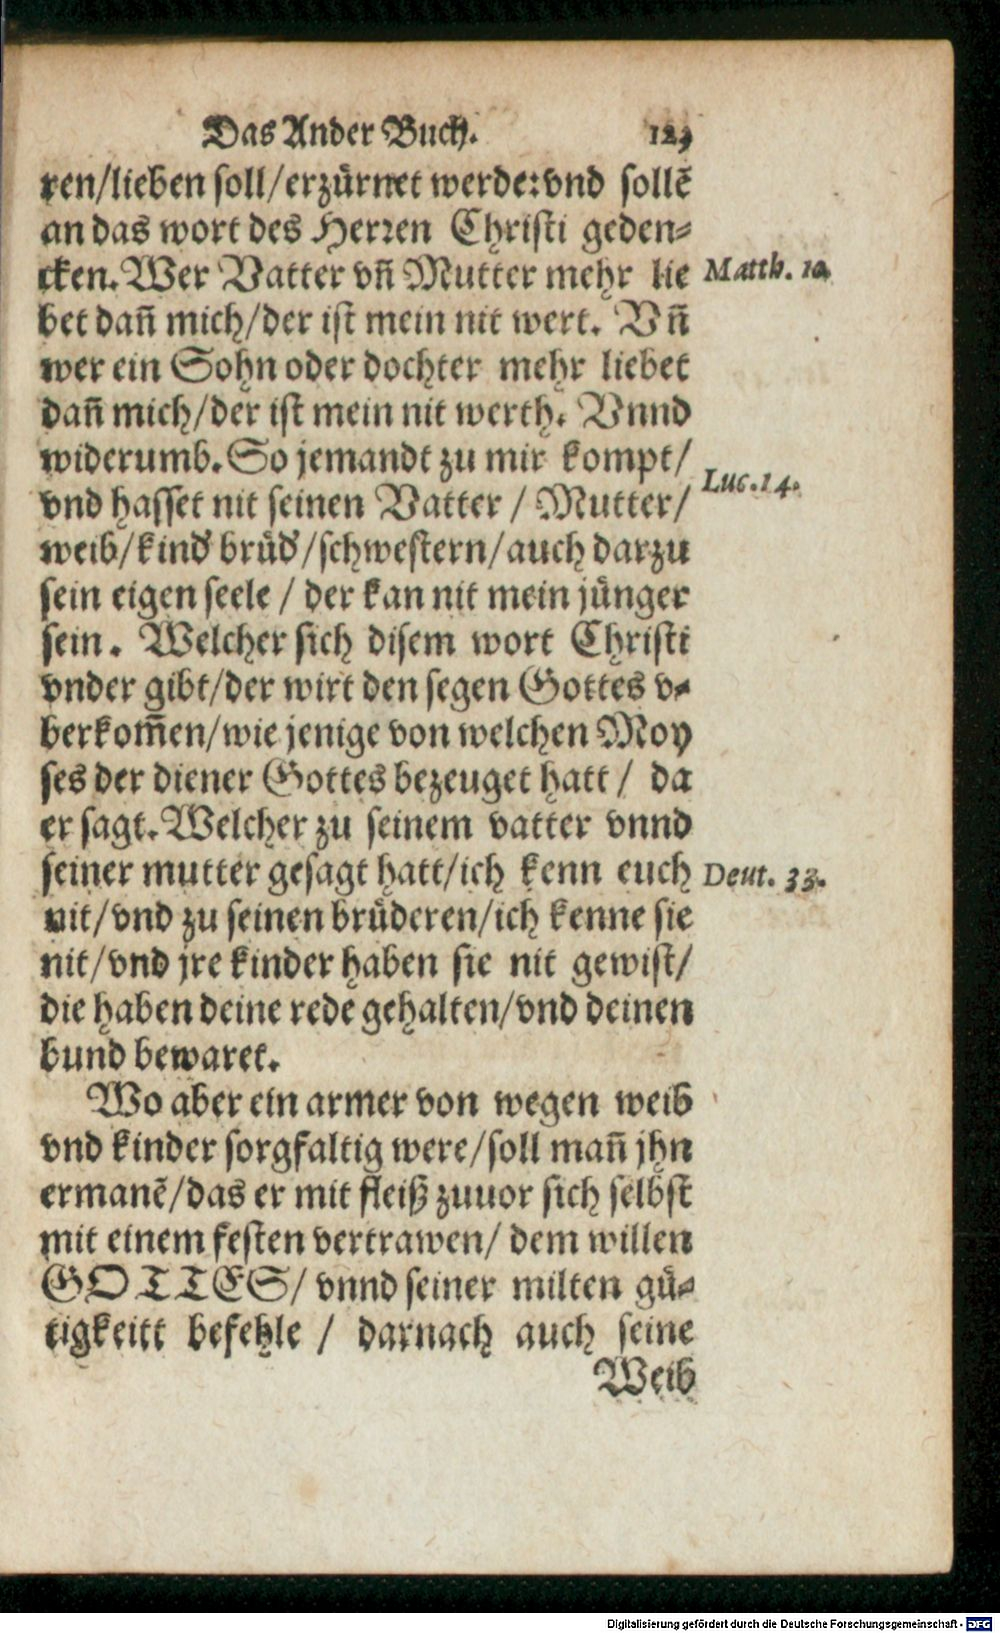 Das Ander Buch.
ren/lieben soll/erzürnet werde:vnd sollē
an das wort des Herren Christi geden⸗
cken. Wer Vatter vn̄ Mutter mehr lie
Matth. 10.
bet dan̄ mich/der ist mein nit wert. Vn̄
wer ein Sohn oder dochter mehr liebet
dan̄ mich/der ist mein nit werth. Vnnd
widerumb. So jemandt zu mir kompt/
Luc. 14.
vnd hasset nit seinen Vatter / Mutter/
weib/kind brüd'/schwestern/auch darzu
sein eigen seele / der kan nit mein jünger
sein. Welcher sich disem wort Christi
vnder gibt/der wirt den segen Gottes v⸗
berkom̄en/wie jenige von welchen Moy
ses der diener Gottes bezeuget hatt / da
er sagt. Welcher zu seinem vatter vnnd
seiner mutter gesagt hatt/ich kenn euch
Deut. 33.
nit/vnd zu seinen brüderen/ich kenne sie
nit/vnd jre kinder haben sie nit gewist/
die haben deine rede gehalten/vnd deinen
bund bewaret.
Wo aber ein armer von wegen weib
vnd kinder sorgfaltig were/soll man̄ jhn
ermanē/das er mit fleiß zuuor sich selbst
mit einem festen vertrawen/ dem willen
GOTTES/ vnnd seiner milten gü⸗
tigkeitt befehle / darnach auch seine
Weib
Digitalisierung gefördert durch die Deutsche Forschungsgemeinschaft - DFG